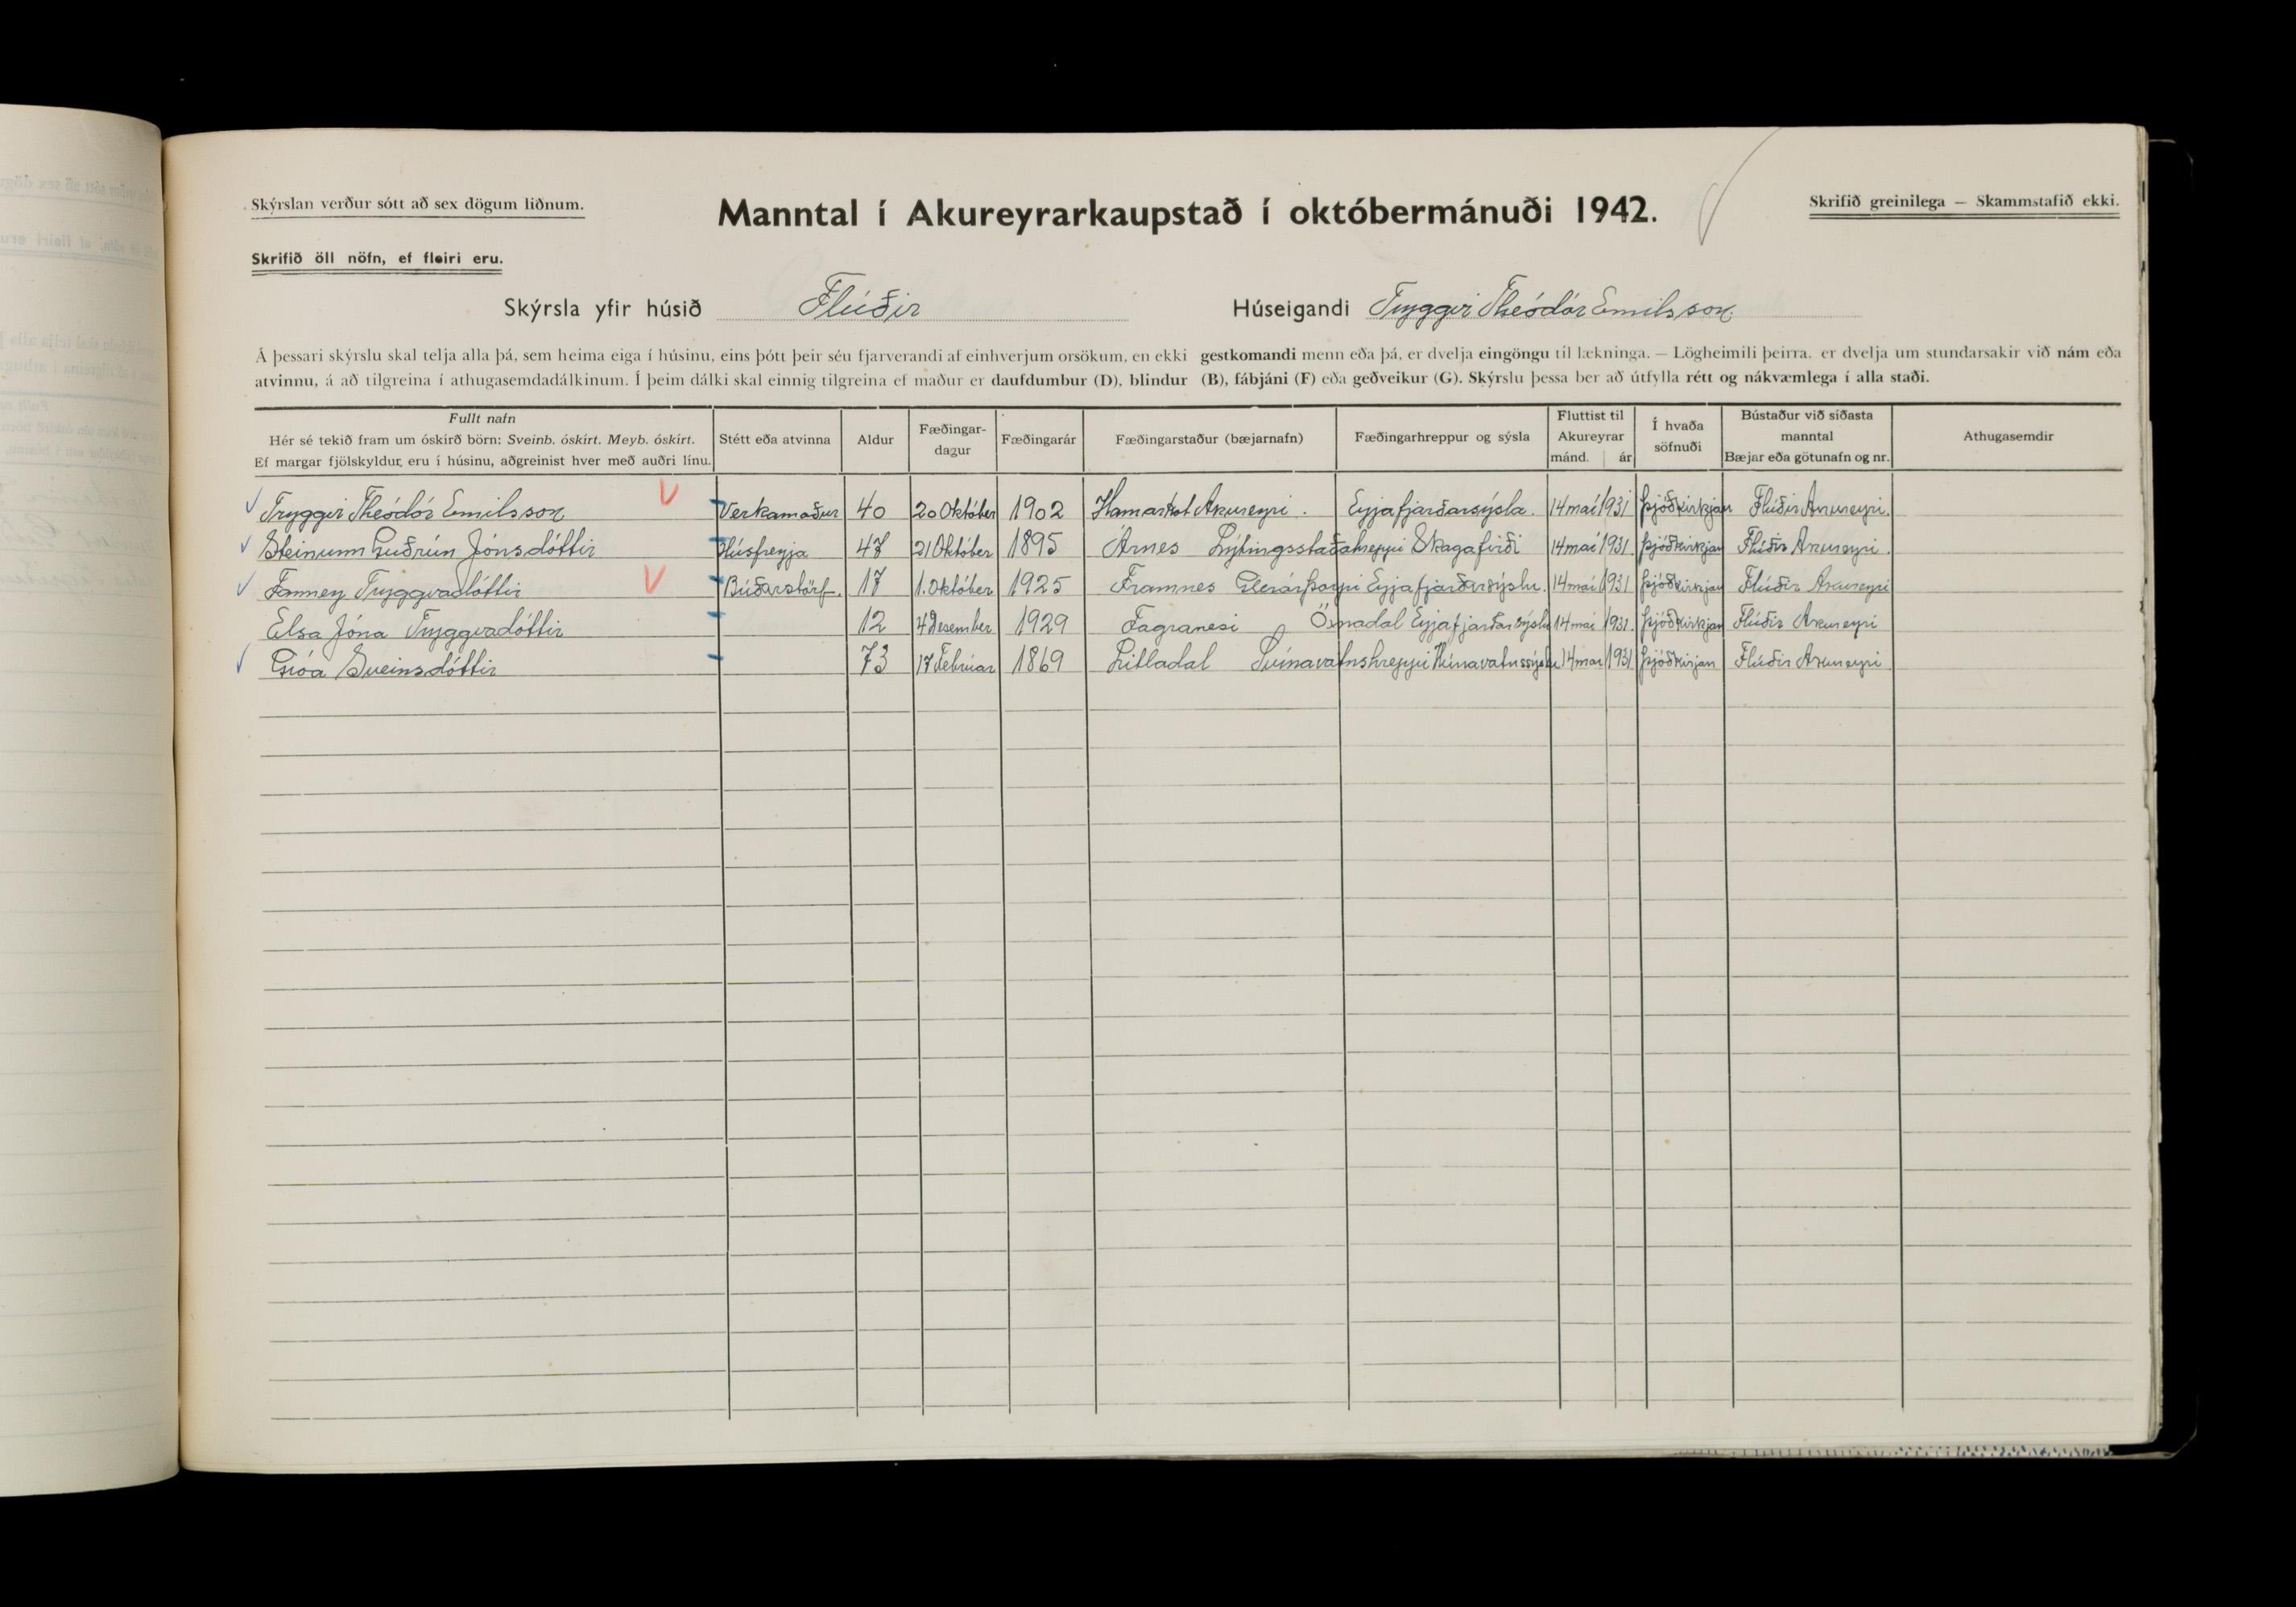 Skýrslan verður sótt að sex dögum liðnum.
Manntal í Akureyrarkaupstað í októbermánuði 1942.
Skrifið greinilega — Skammstafið ekki.
Skrifið öll nöfn, ef fleiri eru.
Skýrsla yfir húsið Flúðir Húseigandi Tryggvi Theódór Emilsson
Á þessari skýrslu skal telja alla þá, sem heima eiga í húsinu, eins þótt þeir séu fjarverandi af einhverjum orsökum, en ekki gestkomandi menn eða þá, er dvelja eingöngu til lækninga. — Lögheimili þeirra, er dvelja um stundarsakir við nám eða
atvinnu, á að tilgreina í athugasemdadálkinum. Í þeim dálki skal einnig tilgreina ef maður er daufdumbur (D), blindur (B), fábjáni (F) eða geðveikur (G). Skýrslu þessa ber að útfylla rétt og nákvæmlega í alla staði.
Fullt nafn
Hér sé tekið fram um óskírð börn: Sveinb. óskírt. Meyb. óskírt.
Ef margar fjölskyldur eru í húsinu, aðgreinist hver með auðri línu.
Stétt eða atvinna
Aldur
Fæðingar-
dagur
Fæðingarár
Fæðingarstaður (bæjarnafn)
Fæðingarhreppur og sýsla
Fluttist til
Akureyrar
mánd. ár
Í hvaða
söfnuði
Bústaður við síðasta
manntal
Bæjar eða götunafn og nr.
Athugasemdir
Tryggvi Theódór Emilsson Verkamaður 40 20 Október 1902 Hamarkot Akureyri. Eyjafjarðarsýsla. 14 maí 1931 þjóðkirkjan Flúðir Akureyri.
Steinunn Guðrún Jónsdóttir Húsfreyja 47 21 Október 1895 Árnes Lýtingsstaðahreppi Skagafirði 14 maí 1931. þjóðkirkjan Flúðir Akureyri.
Fanney Tryggvadóttir Búðarstörf. 17 1. Október 1925 Framnes Glerárþorpi Eyjafjarðarsýslu. 14 maí 1931 þjóðkirkjan Flúðir Akureyri
Elsa Jóna Tryggvadóttir 12 4 Desember 1929 Fagranesi Öxnadal Eyjafjarðarsýslu 14 maí 1931. þjóðkirkjan Flúðir Akureyri
Gróa Sveinsdóttir 73 17 Febrúar 1869 Litladal Svínavatnshreppi Húnavatnssýslu 14 maí 1931 þjóðkirjan Flúðir Akureyri